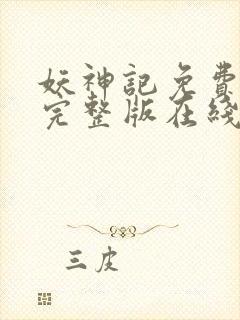 妖神记免費
完整版在綫
三皮